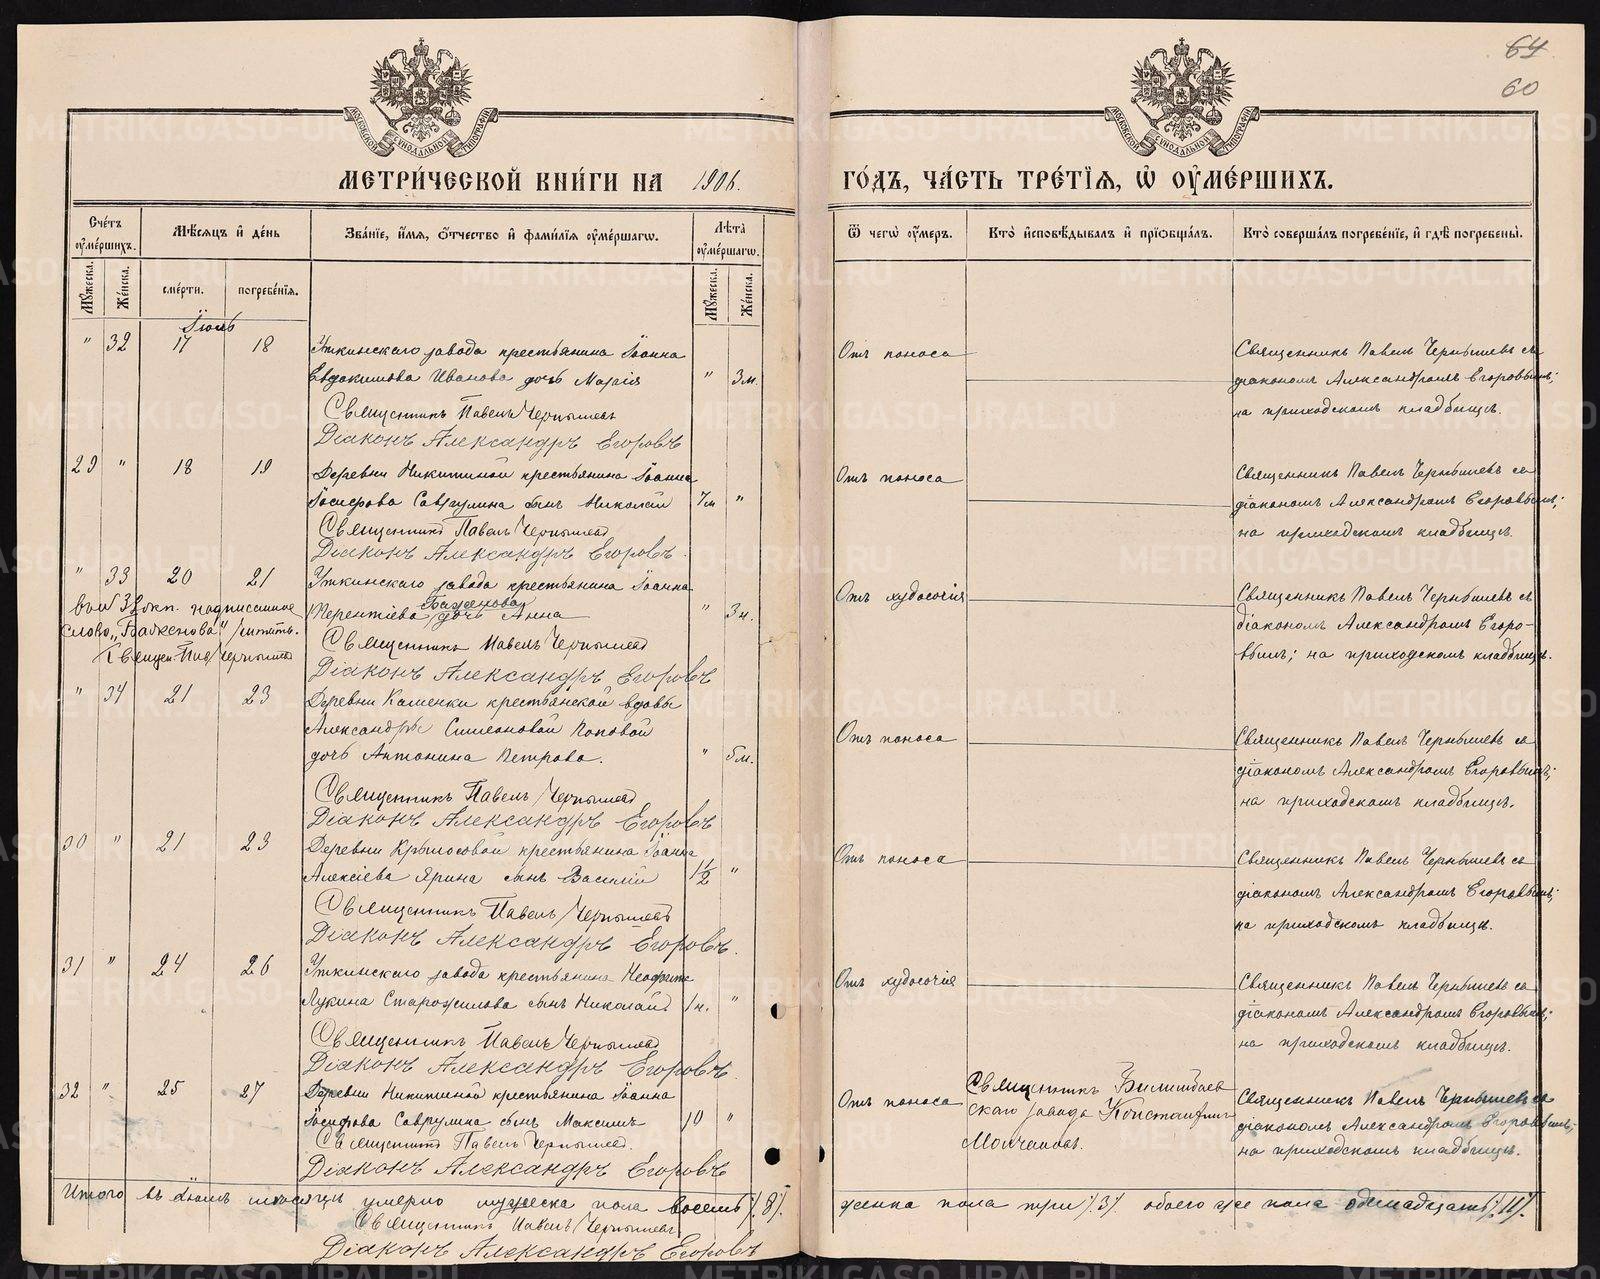 64
60
МОСКОВСКОЙ СѴНОДАЛЬНОЙ ТИПОГРАФІИ
МОСКОВСКОЙ СѴНОДАЛЬНОЙ ТИПОГРАФІИ
МЕТРИ́ЧЕСКОЙ КНИ́ГИ НА 1906. ГО́ДЪ, ЧА́СТЬ ТРЕ́ТІѦ, Ѡ҆ ОУ҆МЕ́РШИХЪ.
Сче́тъ оу҆ме́ршихъ.
Мꙋ́жеска. Же́нска.
Мѣ́сѧцъ и҆ де́нь
сме́рти. погребе́нїѧ.
Зва́нїе, и҆́мѧ, ѻ҆́тчество и҆ фами́лїѧ оу҆ме́ршагѡ.
Лѣ́та оу҆ме́ршагѡ.
Мꙋ́жеска. Же́нска.
Ѿ чегѡ̀ оу҆́меръ.
Кто̀ и҆сповѣ́дывалъ и҆ прїѡбща́лъ.
Кто̀ соверша́лъ погребе́нїе, и҆ гдѣ̀ погребены̀.
Іюль
" 32 17 18 Уткинскаго завода крестьянина Іоанна
Евдокимова Иванова дочь Марія " 3 м.
Священникъ Павелъ Чернышевъ
Діаконъ Александръ Егоровъ
Отъ поноса
Священникъ Павелъ Чернышевъ съ
діакономъ Александромъ Егоровымъ;
на приходскомъ кладбищѣ.
29 " 18 19 Деревни Никитиной крестьянина Іоанна
Іосифова Саврулина сынъ Николай 7 м "
Священникъ Павелъ Чернышевъ
Діаконъ Александръ Егоровъ.
Отъ поноса
Священникъ Павелъ Чернышевъ съ
діакономъ Александромъ Егоровымъ;
на приходскомъ кладбищѣ.
" 33 20 21 Уткинскаго завода крестьянина Іоанна
Баженова
Терентіева дочь Анна " 3 н.
Священникъ Павелъ Чернышевъ
Діаконъ Александръ Егоровъ
надписанное
слово „Баженова" читать.
Священ. Пав. Чернышевъ
Отъ худосочія
Священникъ Павелъ Чернышевъ съ
діакономъ Александромъ Егоро-
вымъ; на приходскомъ кладбищѣ.
" 34 21 23 Деревни Каменки крестьянской вдовы
Александры Симеоновой Поповой
дочь Антонина Петрова. " 5 м.
Священникъ Павелъ Чернышевъ
Діаконъ Александръ Егоровъ
Отъ поноса
Священникъ Павелъ Чернышевъ съ
діакономъ Александромъ Егоровымъ;
на приходскомъ кладбищѣ.
30 " 21 23 Деревни Крылосовой крестьянина Іоанна
Алексіева Ярина сынъ Василій 1½ "
Священникъ Павелъ Чернышевъ
Діаконъ Александръ Егоровъ.
Отъ поноса
Священникъ Павелъ Чернышевъ съ
діакономъ Александромъ Егоровымъ;
на приходскомъ кладбищѣ.
31 " 24 26 Уткинскаго завода крестьянина Неофита
Лукина Старожилова сынъ Николай 1 н. "
Священникъ Павелъ Чернышевъ
Діаконъ Александръ Егоровъ.
Отъ худосочія
Священникъ Павелъ Чернышевъ съ
діакономъ Александромъ Егоровымъ;
на приходскомъ кладбищѣ.
32 " 25 27 Деревни Никитиной крестьянина Іоанна
Іосифова Саврулина сынъ Максимъ 10 "
Священникъ Павелъ Чернышевъ.
Діаконъ Александръ Егоровъ
Отъ поноса
Священникъ Билимбаев
скаго завода Константинъ
Молчановъ.
Священникъ Павелъ Чернышевъ съ
діакономъ Александромъ Егоровымъ;
на приходскомъ кладбищѣ.
Итого въ Іюлѣ мѣсяцѣ умерло мужеска пола восемь /8/. женска пола три /3/ обоего же пола одинадцать /11/.
Священникъ Павелъ Чернышевъ
Діаконъ Александръ Егоровъ
METRIKI.GASO-URAL.RU